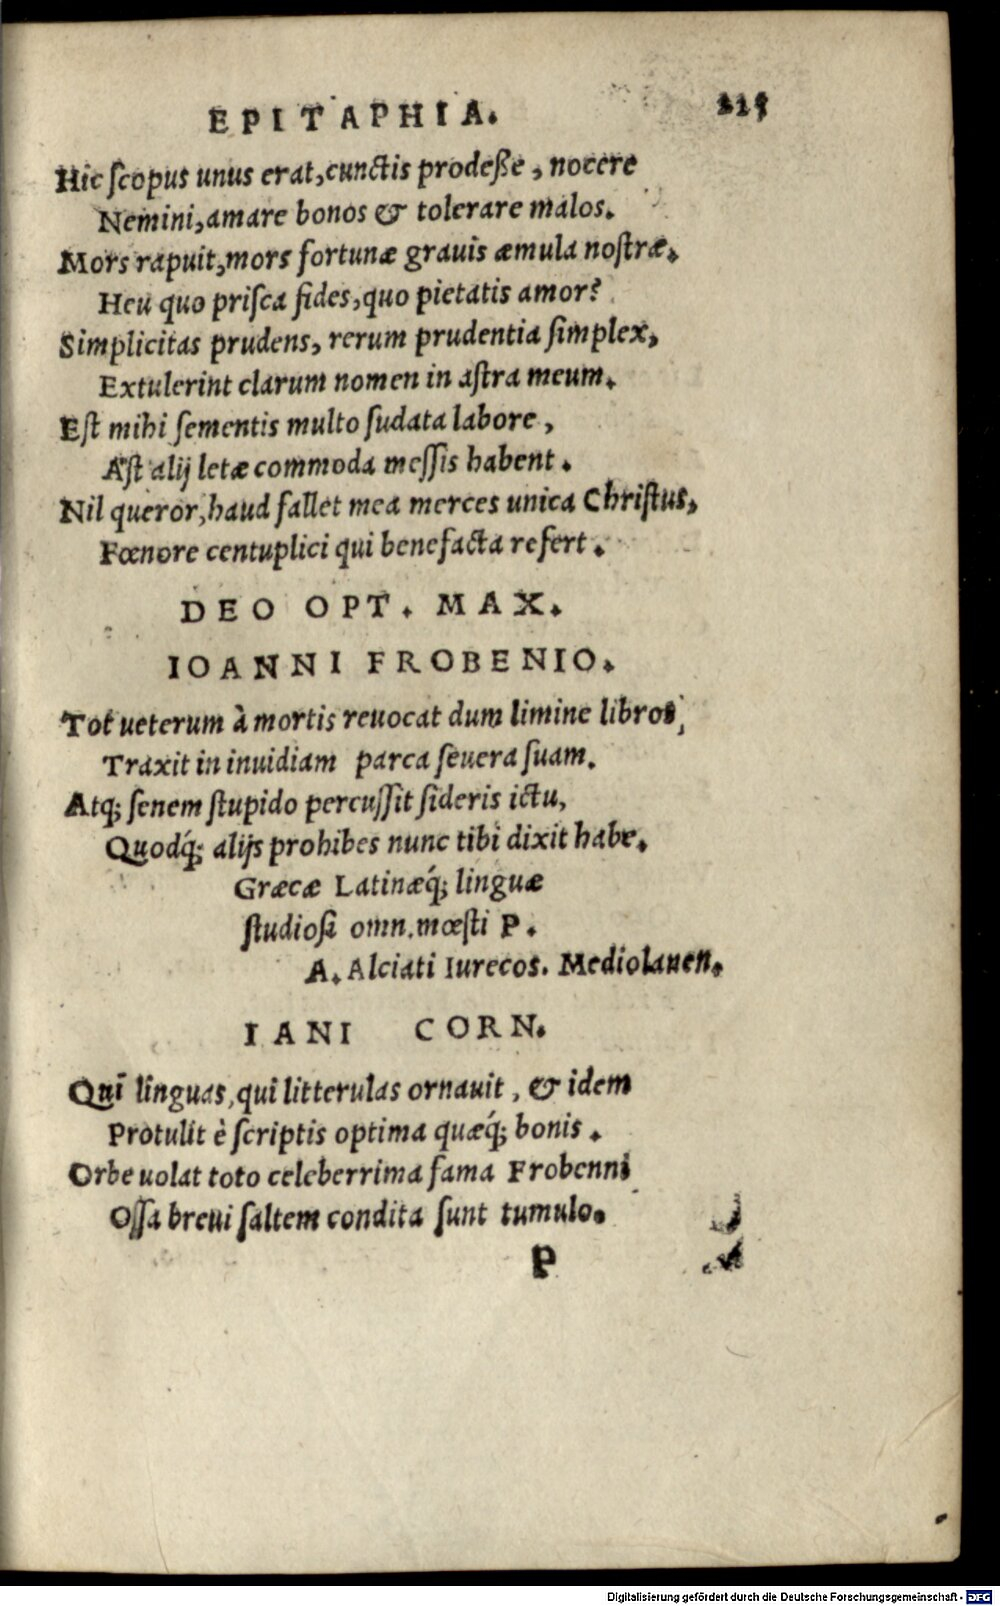 EPITAPHIA. 225
Hic ſcopus unus erat, cunctis prodeße, nocere
Nemini, amare bonos & tolerare malos.
Mors rapuit, mors fortunæ grauis æmula noſtræ.
Heu quo priſca fides, quo pietatis amor?
Simplicitas prudens, rerum prudentia ſimplex,
Extulerint clarum nomen in aſtra meum.
Eſt mihi ſementis multo ſudata labore,
Aſt alij letæ commoda meſſis habent.
Nil queror, haud fallet mea merces unica Chriſtus,
Fœnore centuplici qui benefacta refert.
DEO OPT. MAX.
IOANNI FROBENIO.
Tot ueterum à mortis reuocat dum limine libros,
Traxit in inuidiam parca ſeuera ſuam.
Atq; ſenem ſtupido percuſſit ſideris ictu,
Quodq́; alijs prohibes nunc tibi dixit habe.
Græcæ Latinæq́; linguæ
ſtudioſi omn. mœſti P.
A. Alciati Iurecos. Mediolanen.
IANI CORN.
Qui linguas, qui litterulas ornauit, & idem
Protulit è ſcriptis optima quæq́; bonis.
Orbe uolat toto celeberrima fama Frobenni
Oſſa breui ſaltem condita ſunt tumulo.
P
Digitalisierung gefördert durch die Deutsche Forschungsgemeinschaft - DFG